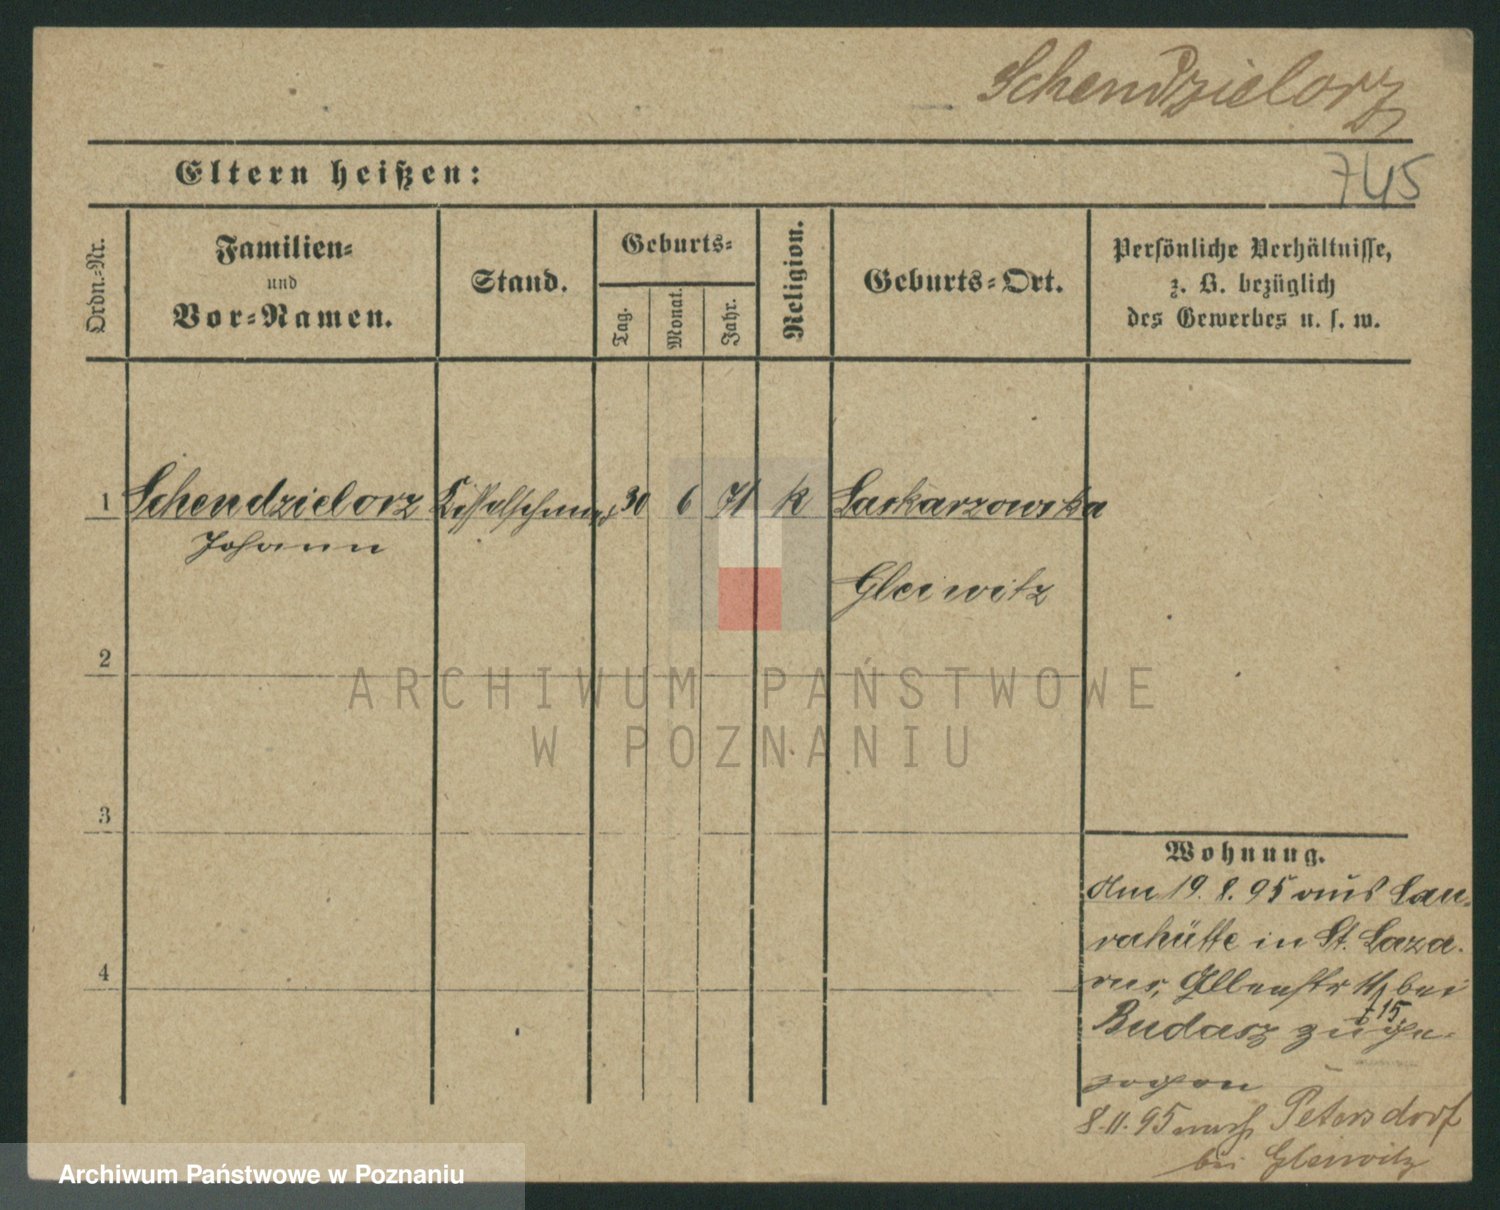 Schendzielorz
Eltern heißen:
745
Ordn.-Nr.
Familien-
und
Vor-Namen.
Stand.
Geburts-
Tag.
Monat.
Jahr.
Religion.
Geburts-Ort.
Persönliche Verhältnisse,
z. B. bezüglich
des Gewerbes u. s. w.
1 Schendzielorz Kesselschmied 30 6 71 k Laskarzowska
Johann
Gleiwitz
2
ARCHIWUM PAŃSTWOWE
W POZNANIU
3
Wohnung.
Am 19.8.95 aus Lau-
rahütte in St. Laza-
4
rus, bei
15
Budasz zuge-
zogen
8.11.95 nach Petersdorf
bei Gleiwitz
Archiwum Państwowe w Poznaniu